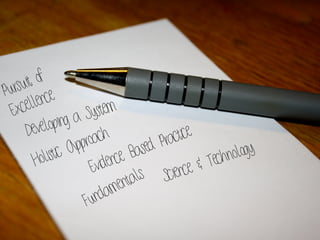 Pursuit of
Excellence
Developing a System
Holistic Approach
Evidence Based Practice
Fundamentals Science & Technology